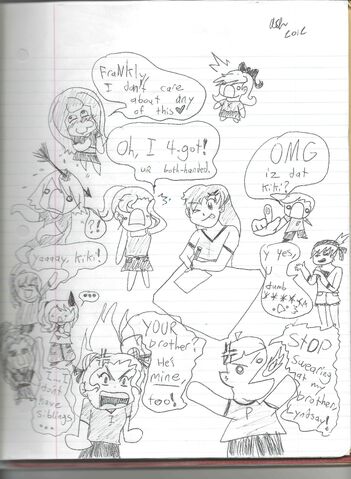 Frankly,
I don't care
about any
of this
Oh, I 4-got!
ur both-handed.
OMG
iz dat
kiki?
?!
yaaaay, kiki!
y yes,
dumb
...
YOUR
brother?
He's
mine,
too!
STOP
Swearing
at my
brother,
Lyndsay!
I...I
don't
have
siblings
...
P